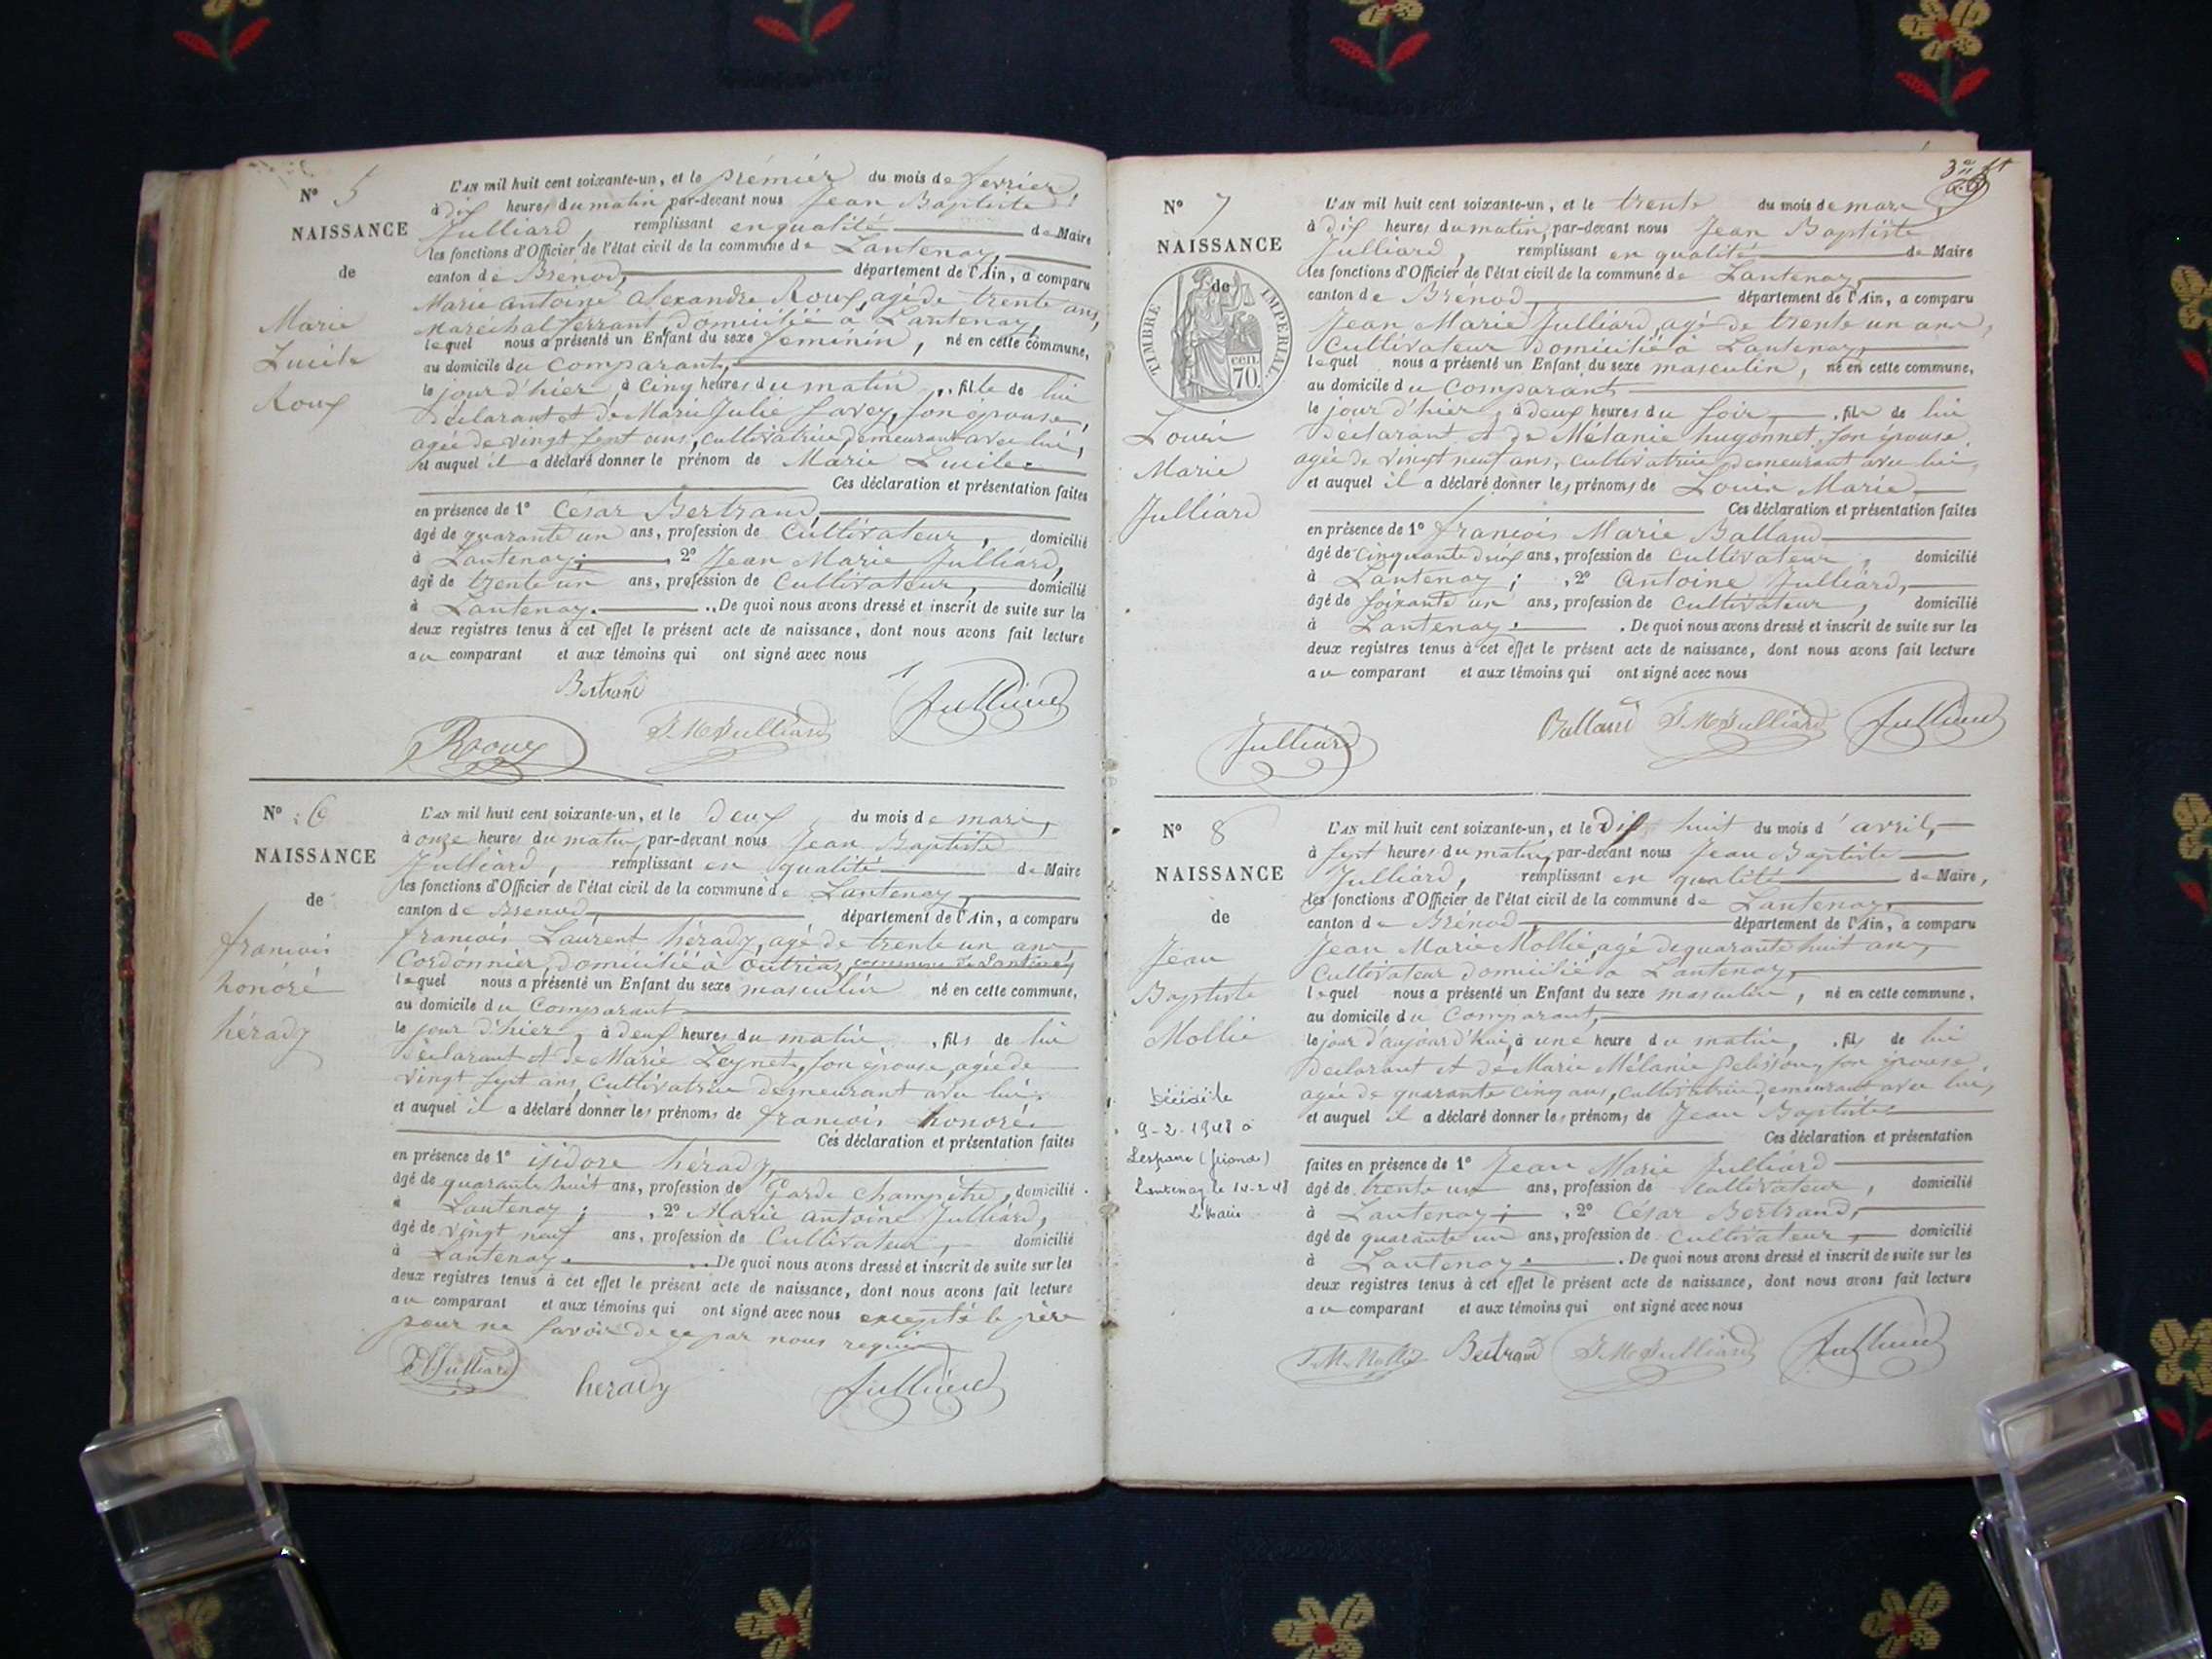 N° 5
NAISSANCE
de
Marie
Lucile
Roux
L'AN mil huit cent soixante-un, et le premier du mois de fevrier,
à dix heures du matin par-devant nous Jean Baptiste
Julliard, remplissant en qualité de Maire
les fonctions d'Officier de l'état civil de la commune de Lantenay,
canton de Brénod, département de l'Ain, a comparu
Marie antoine alexandre Roux, agé de trente ans,
Maréchal ferrant, domicilié à Lantenay,
lequel nous a présenté un Enfant du sexe feminin, né en cette commune,
au domicile du comparant,
le jour d'hier, à cinq heures du matin, fille de lui
déclarant et de Marie Julie favez, son épouse,
agée de vingt sept ans, cultivatrice demeurant avec lui,
et auquel il a déclaré donner le prénom de Marie Lucile
Ces déclaration et présentation faites
en présence de 1° César Bertrand
âgé de quarante un ans, profession de Cultivateur, domicilié
à Lantenay; 2° Jean Marie Julliard,
âgé de trente un ans, profession de Cultivateur, domicilié
à Lantenay. De quoi nous avons dressé et inscrit de suite sur les
deux registres tenus à cet effet le présent acte de naissance, dont nous avons fait lecture
au comparant et aux témoins qui ont signé avec nous
Bertrand
Roux J M Julliard Julliard
N° 6
NAISSANCE
de
francois
honoré
hérady
L'AN mil huit cent soixante-un, et le deux du mois de mars,
à onze heures du matin, par-devant nous Jean Baptiste
Julliard, remplissant en qualité de Maire
les fonctions d'Officier de l'état civil de la commune de Lantenay,
canton de Brenod, département de l'Ain, a comparu
francois Laurent hérady, agé de trente un ans
Cordonnier, domicilié à Outriaz,
lequel nous a présenté un Enfant du sexe masculin né en cette commune,
au domicile du Comparant
le jour d'hier, à deux heures du matin, fils de lui
déclarant et de Marie Leynet, son épouse, agée de
vingt sept ans, Cultivatrice demeurant avec lui,
et auquel il a déclaré donner les prénoms de francois honoré
Ces déclaration et présentation faites
en présence de 1° isidore hérady,
âgé de quarante huit ans, profession de Garde champêtre, domicilié
à Lantenay; 2° Marie antoine Julliard,
âgé de vingt neuf ans, profession de Cultivateur, domicilié
à Lantenay. De quoi nous avons dressé et inscrit de suite sur les
deux registres tenus à cet effet le présent acte de naissance, dont nous avons fait lecture
au comparant et aux témoins qui ont signé avec nous excepté le père
pour ne savoir de ce par nous requis
Julliard herady Julliard
3me
N° 7
NAISSANCE
de
TIMBRE IMPERIAL
cen.
70
Louis
Marie
Julliard
L'AN mil huit cent soixante-un, et le trente du mois de mars,
à dix heures du matin, par-devant nous Jean Baptiste
Julliard, remplissant en qualité de Maire
les fonctions d'Officier de l'état civil de la commune de Lantenay,
canton de Brénod, département de l'Ain, a comparu
Jean Marie Julliard, agé de trente un ans,
Cultivateur domicilié à Lantenay,
lequel nous a présenté un Enfant du sexe masculin, né en cette commune,
au domicile du Comparant
le jour d'hier, à deux heures du soir, fils de lui
Déclarant et de Mélanie hugonnet son épouse,
agée de vingt neuf ans, cultivatrice demeurant avec lui,
et auquel il a déclaré donner les prénoms de Louis Marie
Ces déclaration et présentation faites
en présence de 1° francois Marie Balland
âgé de cinquante deux ans, profession de cultivateur, domicilié
à Lantenay; 2° antoine Julliard,
âgé de soixante un ans, profession de cultivateur, domicilié
à Lantenay. De quoi nous avons dressé et inscrit de suite sur les
deux registres tenus à cet effet le présent acte de naissance, dont nous avons fait lecture
au comparant et aux témoins qui ont signé avec nous
Julliard Balland J M Julliard Julliard
N° 8
NAISSANCE
de
Jean
Baptiste
Mollie
Décédé le
9-2-1948 à
Lesparre (Gironde)
Lantenay le 14-2-48
Le Maire
L'AN mil huit cent soixante-un, et le Dix huit du mois d'avril,
à sept heures du matin, par-devant nous Jean Baptiste
Julliard, remplissant en qualité de Maire,
les fonctions d'Officier de l'état civil de la commune de Lantenay,
canton de Brénod, département de l'Ain, a comparu
Jean Marie Mollie, agé de quarante huit ans,
Cultivateur domicilié à Lantenay,
lequel nous a présenté un Enfant du sexe masculin, né en cette commune,
au domicile du Comparant,
le jour d'aujourd'hui, à une heure du matin, fils de lui
déclarant et de Marie Mélanie Pelisson, son épouse
agée de quarante cinq ans, Cultivatrice, demeurant avec lui,
et auquel il a déclaré donner les prénoms de Jean Baptiste
Ces déclaration et présentation
faites en présence de 1° Jean Marie Julliard
âgé de trente un ans, profession de Cultivateur, domicilié
à Lantenay; 2° César Bertrand,
âgé de quarante un ans, profession de cultivateur, domicilié
à Lantenay. De quoi nous avons dressé et inscrit de suite sur les
deux registres tenus à cet effet le présent acte de naissance, dont nous avons fait lecture
au comparant et aux témoins qui ont signé avec nous
J. M. Mollie Bertrand J M Julliard Julliard